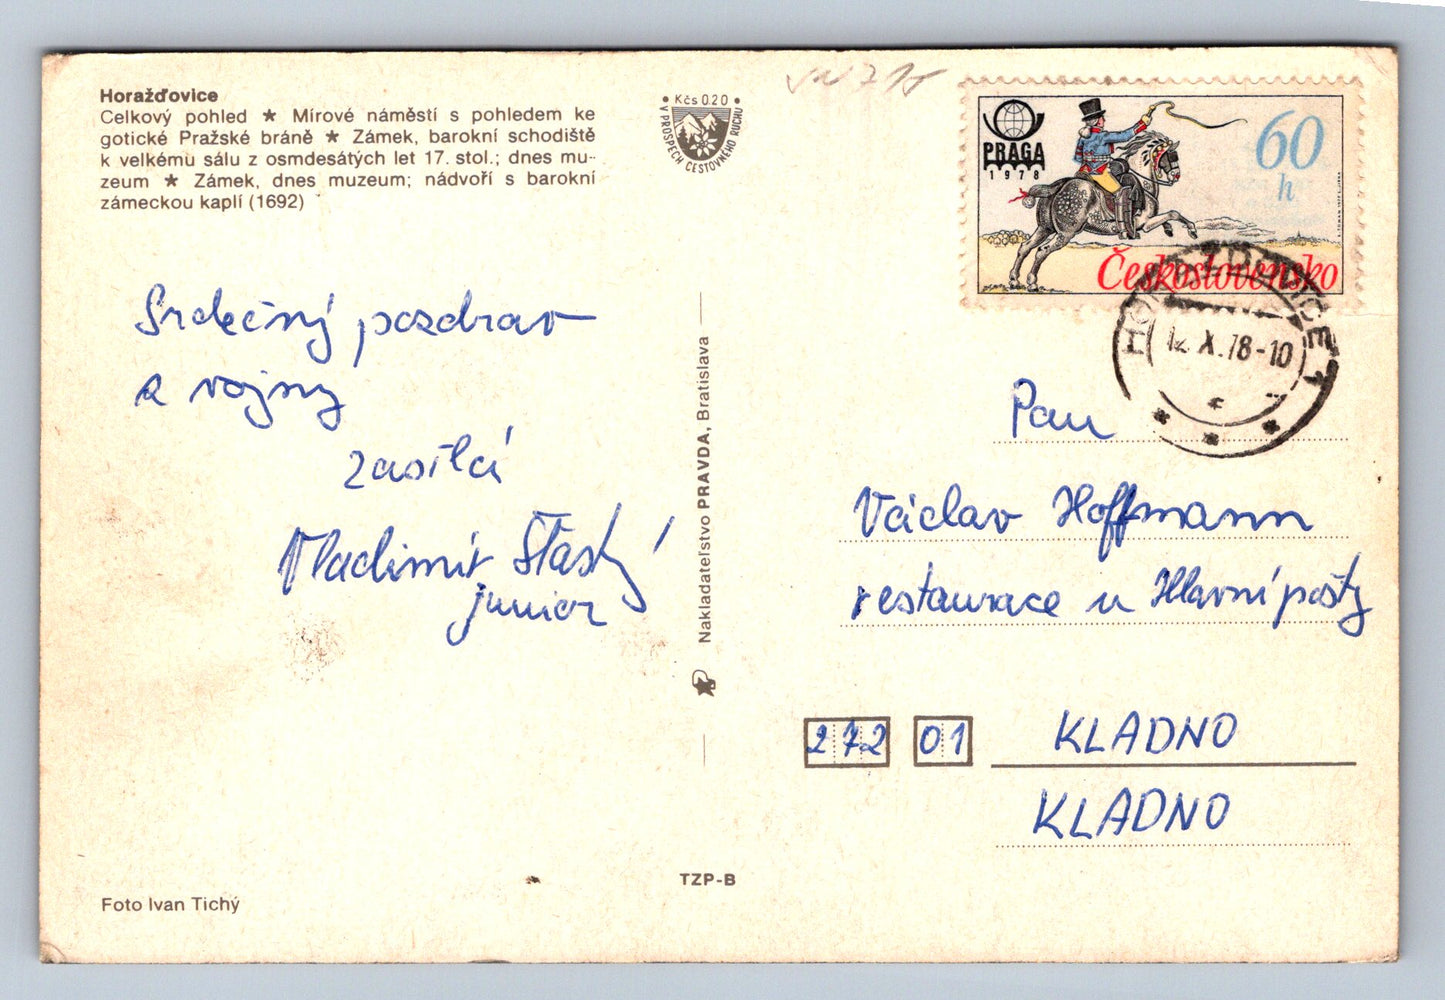 Horažďovice
Celkový pohled ★ Mírové náměstí s pohledem ke
gotické Pražské bráně ★ Zámek, barokní schodiště
k velkému sálu z osmdesátých let 17. stol.; dnes mu-
zeum ★ Zámek, dnes muzeum; nádvoří s barokní
zámeckou kaplí (1692)
Kčs 0.20
V PROSPĚCH CESTOVNÉHO RUCHU
PRAGA
1978
60
h
Československo
12.X.78-10
Srdečný pozdrav
z vojny
zasílá
Vladimír Šťastný
junior
Nakladateľstvo PRAVDA, Bratislava
Pan
Václav Hoffmann
restaurace u Hlavní pošty
272 01 KLADNO
KLADNO
TZP-B
Foto Ivan Tichý